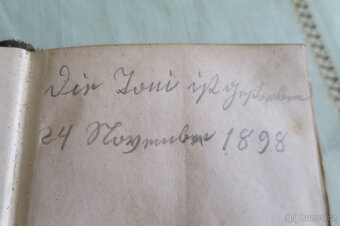 Die Toni ist gestorben
24 November 1898